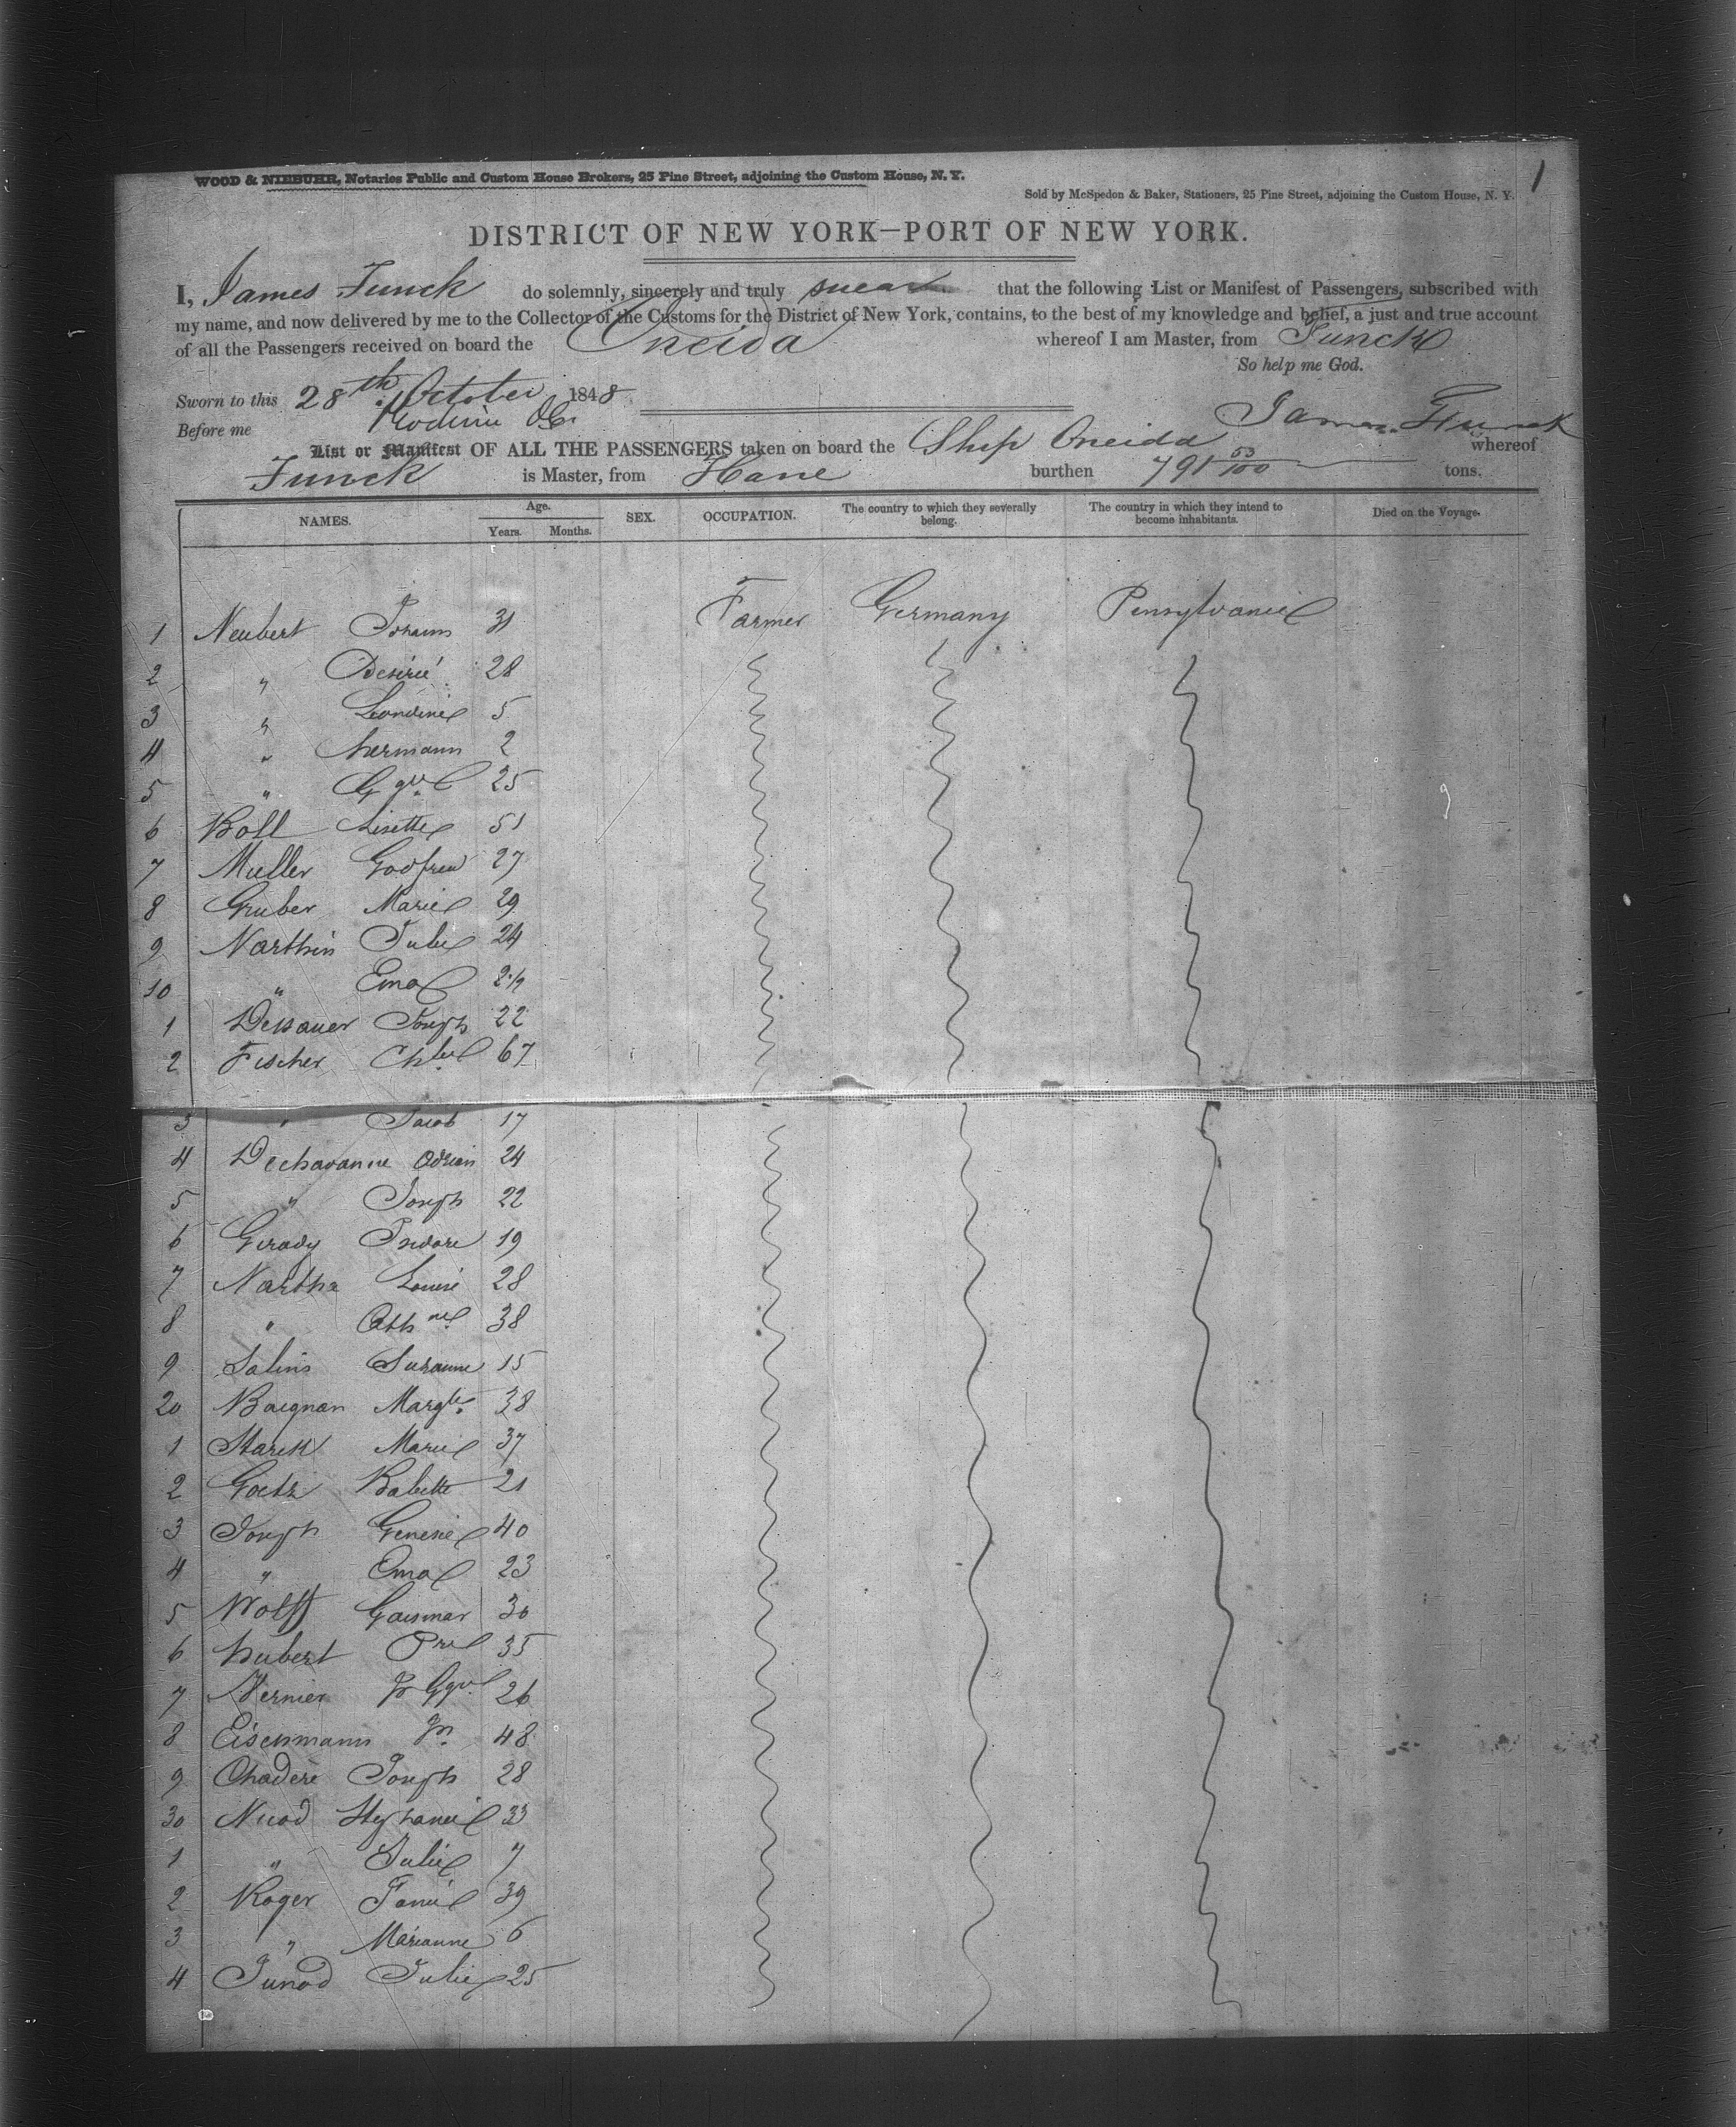 1
WOOD & NIEBUHR, Notaries Public and Custom House Brokers, 25 Pine Street, adjoining the Custom House, N. Y.
Sold by McSpedon & Baker, Stationers, 25 Pine Street, adjoining the Custom House, N. Y.
DISTRICT OF NEW YORK—PORT OF NEW YORK.
I, James Funck do solemnly, sincerely and truly swear that the following List or Manifest of Passengers, subscribed with
my name, and now delivered by me to the Collector of the Customs for the District of New York, contains, to the best of my knowledge and belief, a just and true account
of all the Passengers received on board the Oneida whereof I am Master, from Funck
So help me God.
Sworn to this 28th October 1848
Before me
James Funck
List or Manifest OF ALL THE PASSENGERS taken on board the Ship Oneida whereof
Funck is Master, from Havre burthen 791 53/100 tons.
NAMES. Age. Years. Months. SEX. OCCUPATION. The country to which they severally belong. The country in which they intend to become inhabitants. Died on the Voyage.
1 Neubert Johann 31 Farmer Germany Pensylvanie
2 " Desirée 28
3 " 5
4 " hermann 2
5 " 25
6 Boll Lisette 51
7 Muller Godfried 27
8 Gruber Marie 29
9 Narthin Julie 24
10 " Ema 2 1/2
1 Dessauer Joseph 22
2 Fischer 67
3 " Jacob 17
4 Dechavanne Adrien 24
5 " Joseph 22
6 Girady Isidore 19
7 Nartha Louise 28
8 " 38
9 Salins Suzanne 15
20 Baignan Margte. 38
1 Starck Marie 37
2 Goetz Babette 21
3 Joseph 40
4 " Ema 23
5 Wolff Gaismar 30
6 hubert Pre 35
7 Vernier 26
8 Eisenmann Jn. 48
9 Chadere Joseph 28
30 Nicod Stephanie 33
1 " Julie 7
2 Roger Fanie 39
3 " Marianne 6
4 Junod Julie 25